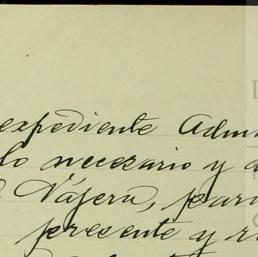 expediente Adm
lo necesario y a
Nájera, para
presente y r